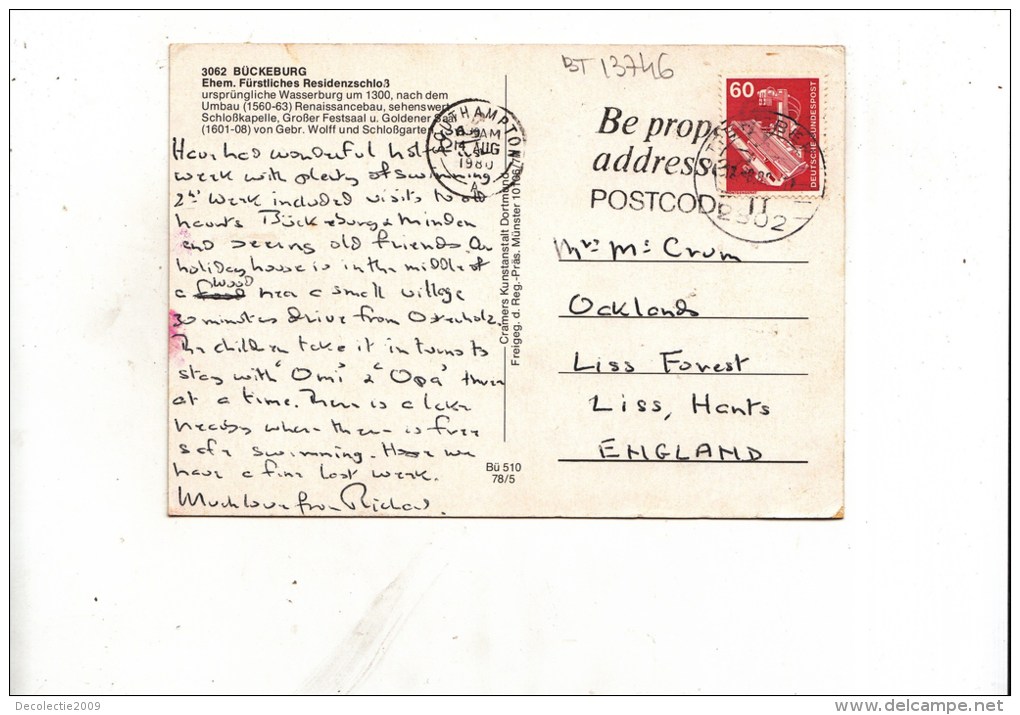 BT 13746
3062 BÜCKEBURG
Ehem. Fürstliches Residenzschloß
ursprüngliche Wasserburg um 1300, nach dem
Umbau (1560-63) Renaissancebau, sehenswert
Schloßkapelle, Großer Festsaal u. Goldener Saal
(1601-08) von Gebr. Wolff und Schloßgarten
Have had wonderful
week with plenty of swimming.
2nd week included visits to old
haunts Bückeburg & Minden
and seeing old friends Our
holiday house is in the middle of
a wood near a small village
30 minutes drive from Osterholz.
The children take it in turns to
stay with 'Omi' & 'Opa' three
at a time. There is a lake
nearby where there is free
safe swimming. Hope we
have a fine last week.
Much love from Richard.
SOUTHAMPTON
AM
AUG
1980
A
Be prop
address
POSTCODE
60
DEUTSCHE BUNDESPOST
Mrs Mc Crum
Oaklands
Liss Forest
Liss, Hants
ENGLAND
Cramers Kunstanstalt Dortmund
Freigeg. d. Reg.-Präs. Münster
Bü 510
78/5
Decolectie2009
www.delcampe.net